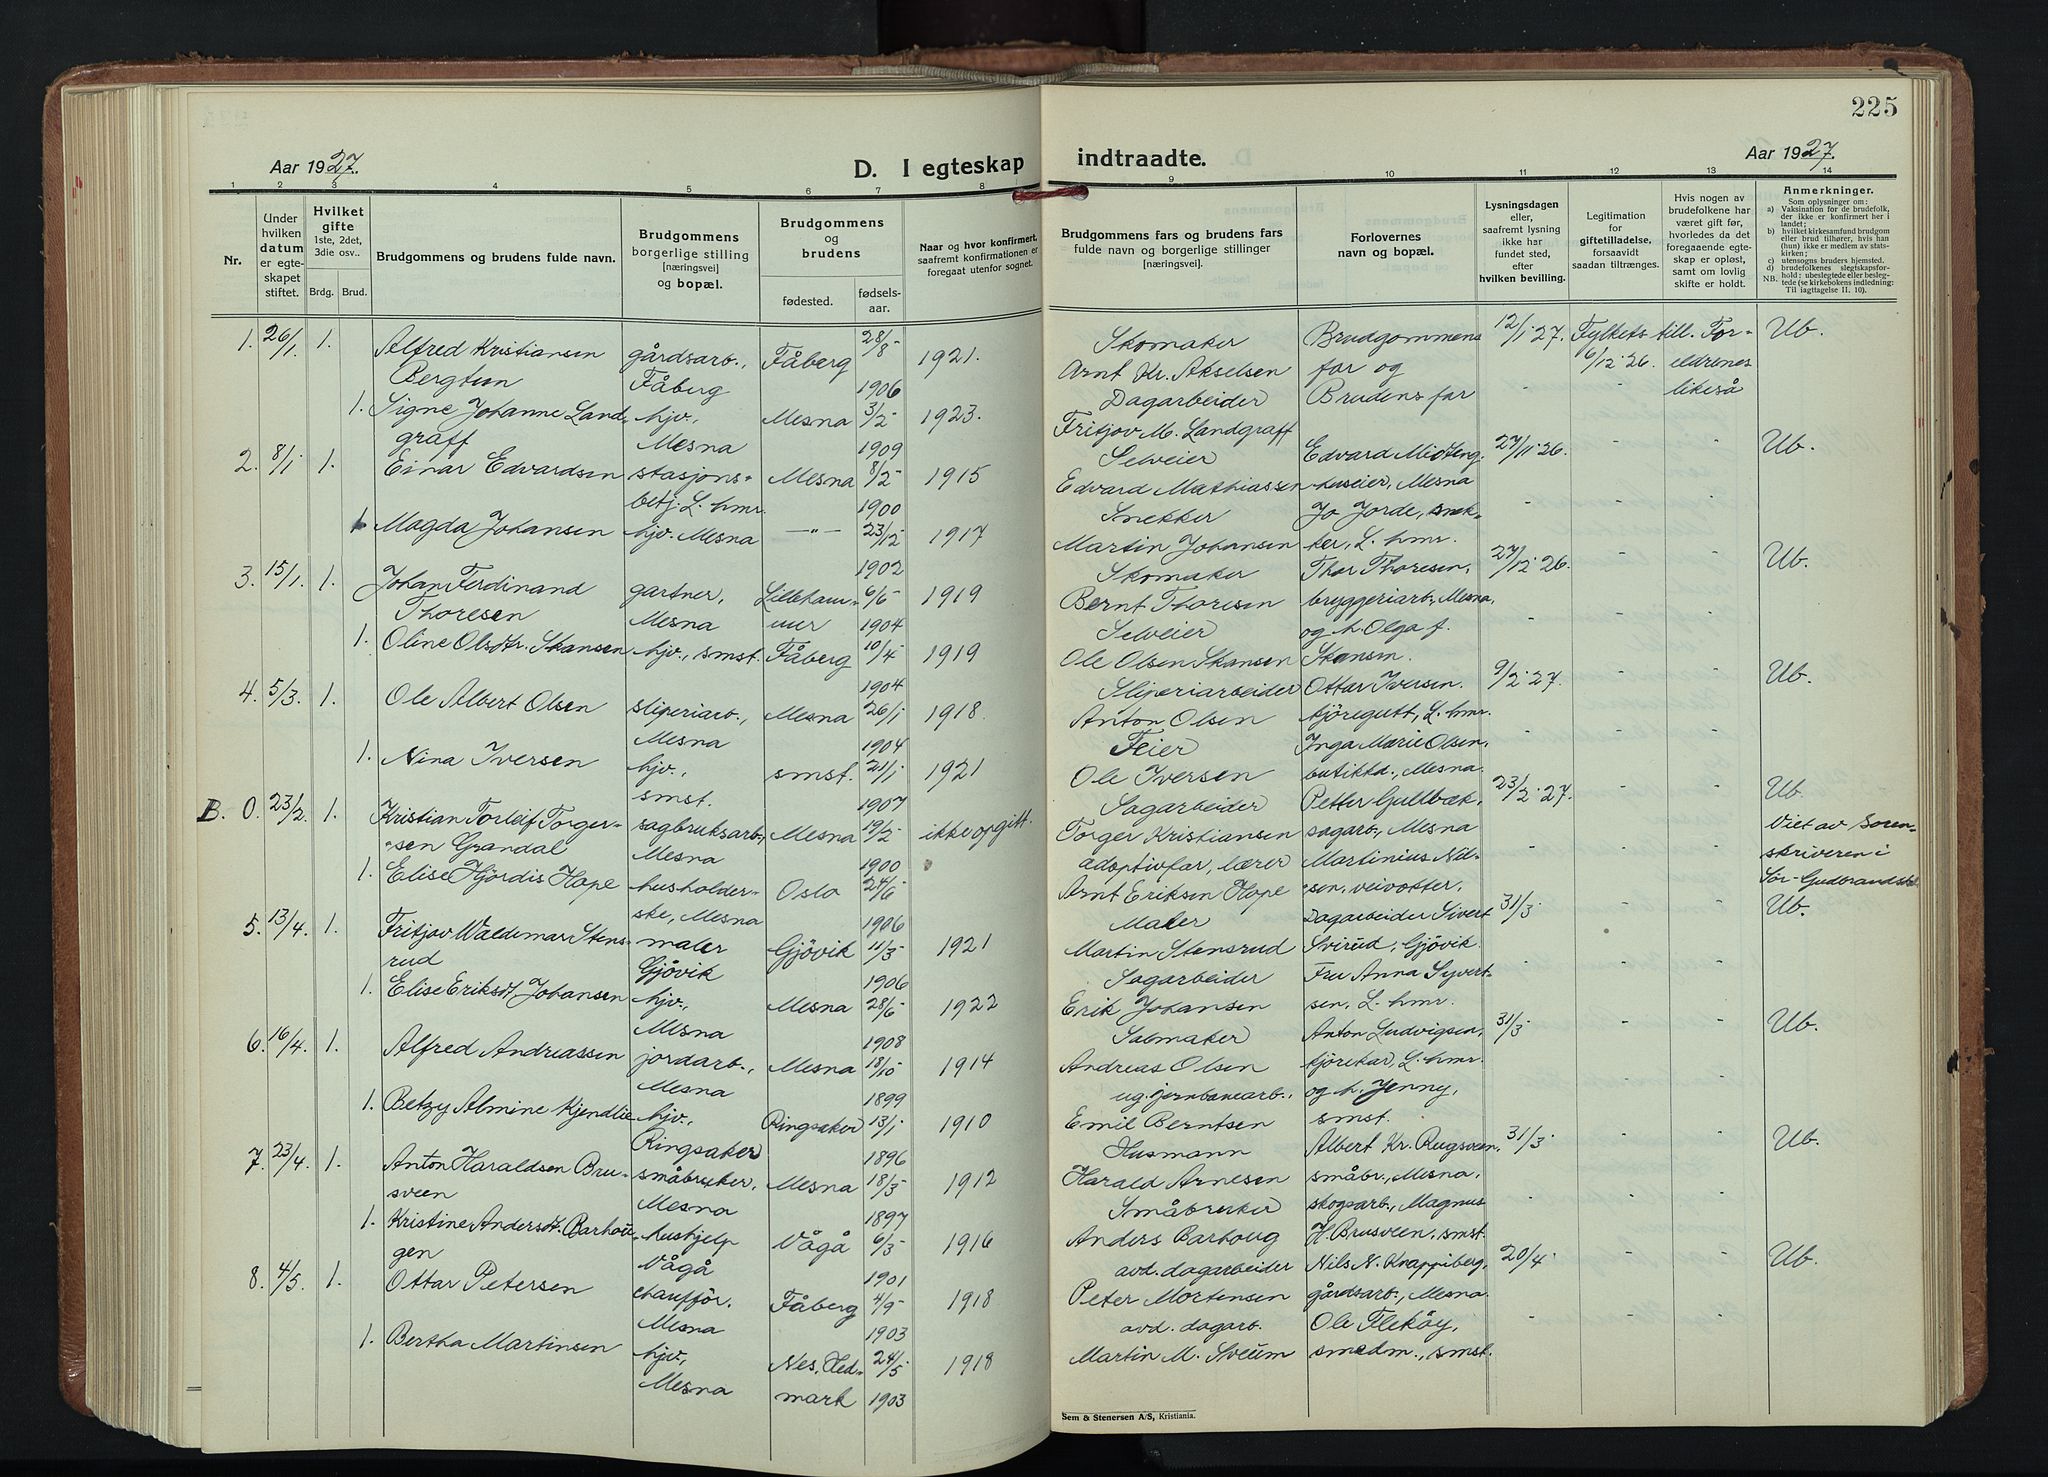 225
Aar 1927.
D. I egteskap indtraadte.
Aar 1927.
1 2 3 4 5 6 7 8 9 10 11 12 13 14
Nr.
Under hvilken datum er egteskapet stiftet.
Hvilket gifte 1ste, 2det, 3die osv..
Brdg. Brud.
Brudgommens og brudens fulde navn.
Brudgommens borgerlige stilling [næringsvei] og bopæl.
Brudgommens og brudens
fødested. fødsels-aar.
Naar og hvor konfirmert, saafremt konfirmationen er foregaat utenfor sognet.
Brudgommens fars og brudens fars fulde navn og borgerlige stillinger [næringsvei].
Forlovernes navn og bopæl.
Lysningsdagen eller, saafremt lysning ikke har fundet sted, efter hvilken bevilling.
Legitimation for giftetilladelse, forsaavidt saadan tiltrænges.
Hvis nogen av brudefolkene har været gift før, hvorledes da det foregaaende egteskap er opløst, samt om lovlig skifte er holdt.
Anmerkninger.
Som oplysninger om:
a) Vaksination for de brudefolk, der ikke er konfirmert her i landet;
b) hvilket kirkesamfund brudgom eller brud tilhører, hvis han (hun) ikke er medlem av statskirken;
c) utensogns bruders hjemsted.
d) brudefolkenes slegtskapsforhold: ubeslegtede eller beslegtede (se kirkebokens indledning:
NB. Til iagttagelse II. 10).
1. 26/1 1. Alfred Kristiansen Bergtun gårdsarb., Fåberg Fåberg 28/8 1906 1921. Skomaker Arnt Kr. Akselsen Brudgommens far og 12/1 27. Fylkets till. Foreldrenes 6/12 26. Ub.
1. Signe Johanne Landgraff hjv., Mesna Mesna 3/2 1909 1923. Dagarbeider Fritjov M. Landgraff Brudens far - - likeså
2. 8/1 1. Einar Edvardsen stasjonsbetj. L. hmr. Mesna 8/2 1900 1915 Selveier Edvard Mathiassen Edvard Midteng, huseier, Mesna 27/11 26. - - Ub.
1 Magda Johansen hjv. Mesna -"- 23/12 1902 1917 Snekker Martin Johansen Jo Jorde, snekker, L. hmr. - - -
3. 15/1 1. Johan Ferdinand Thoresen gartner, Mesna Lillehammer 6/5 1904 1919 Skomaker Bernt Thoresen Thor Thoresen, bryggeriarb., Mesna, 27/12 26. - - Ub.
1. Oline Olsdtr. Skansen hjv., smst. Fåberg 10/4 1904 1919 Selveier Ole Olsen Skansen og h. Olga f. Skansen. - - -
4. 5/3. 1. Ole Albert Olsen sliperiarb., Mesna Mesna 26/1 1904 1918. Sliperiarbeider Anton Olsen Ottar Iversen. kjöregutt, L. hmr. 9/2 27. - - Ub.
1. Nina Iversen hjv., smst. smst. 21/1 1907 1921 Feier Ole Iversen Inga Marie Olsen, butikkd., Mesna. - - -
B. 0. 23/2. 1. Kristian Torleif Torgersen Grandal sagbruksarb., Mesna Mesna 19/2 1900 ikke opgitt. Sagarbeider Torger Kristiansen Petter Gullbæk, sagarb., Mesna 23/2 27. - - Ub. Viet av Sorenskriveren i Sør-Gudbrandsdal
1. Elise Hjördis Hope husholderske, Mesna Oslo 24/6 1906 adoptivfar, lærer Arnt Eriksen Hope Martinius Nilsen, veivokter, - - -
5. 13/4. 1. Fritjov Waldemar Stensrud maler Gjövik Gjövik 11/3 1906 1921 Maler Martin Stensrud Dagarbeider Sivert Svirud, Gjövik. 31/3 - - Ub.
1. Elise Eriksdt. Johansen hjv., Mesna Mesna 28/6 1908 1922 Sagarbeider Erik Johansen Fru Anna Syvertsen, L. hmr. - - -
6. 16/4. 1. Alfred Andreassen jordarb., Mesna Mesna 18/10 1899 1914 Salmaker Andreas Olsen Anton Ludvigsen, kjörekar, L. hmr. 31/3 - - Ub.
1. Betzy Almine Kjendlie hjv., Ringsaker Ringsaker 13/1 1896 1910 ug. jernbanearb., Emil Berntsen og h. Jenny, smst. - - -
7. 23/4. 1. Anton Haraldsen Brusveen småbruker, Mesna Mesna 18/3 1897 1912 Husmann Harald Arnesen Albert Kr. Rugsveen, småbr., Mesna, 31/3 - - Ub.
1. Kristine Andersdt. Barhougen hushjelp Vågå Vågå 6/3 1901 1916 Småbruker Anders Barhoug skogsarb., Magnus H. Brusveen, smst. - - -
8. 4/5. 1. Ottar Petersen chaufför. Mesna Fåberg 4/9 1903 1918 avd. dagarbeider Peter Mortensen Nils N. Knappiberg, gårdsarb., Mesna. 20/4 - - Ub.
1. Bertha Martinsen hjv., Mesna Nes, Hedmark 24/5 1903 1918 avd. dagarb. Martin M. Sveum Ole Flekøy, smedm., smst. - - -
Sem & Stenersen A/S, Kristiania.